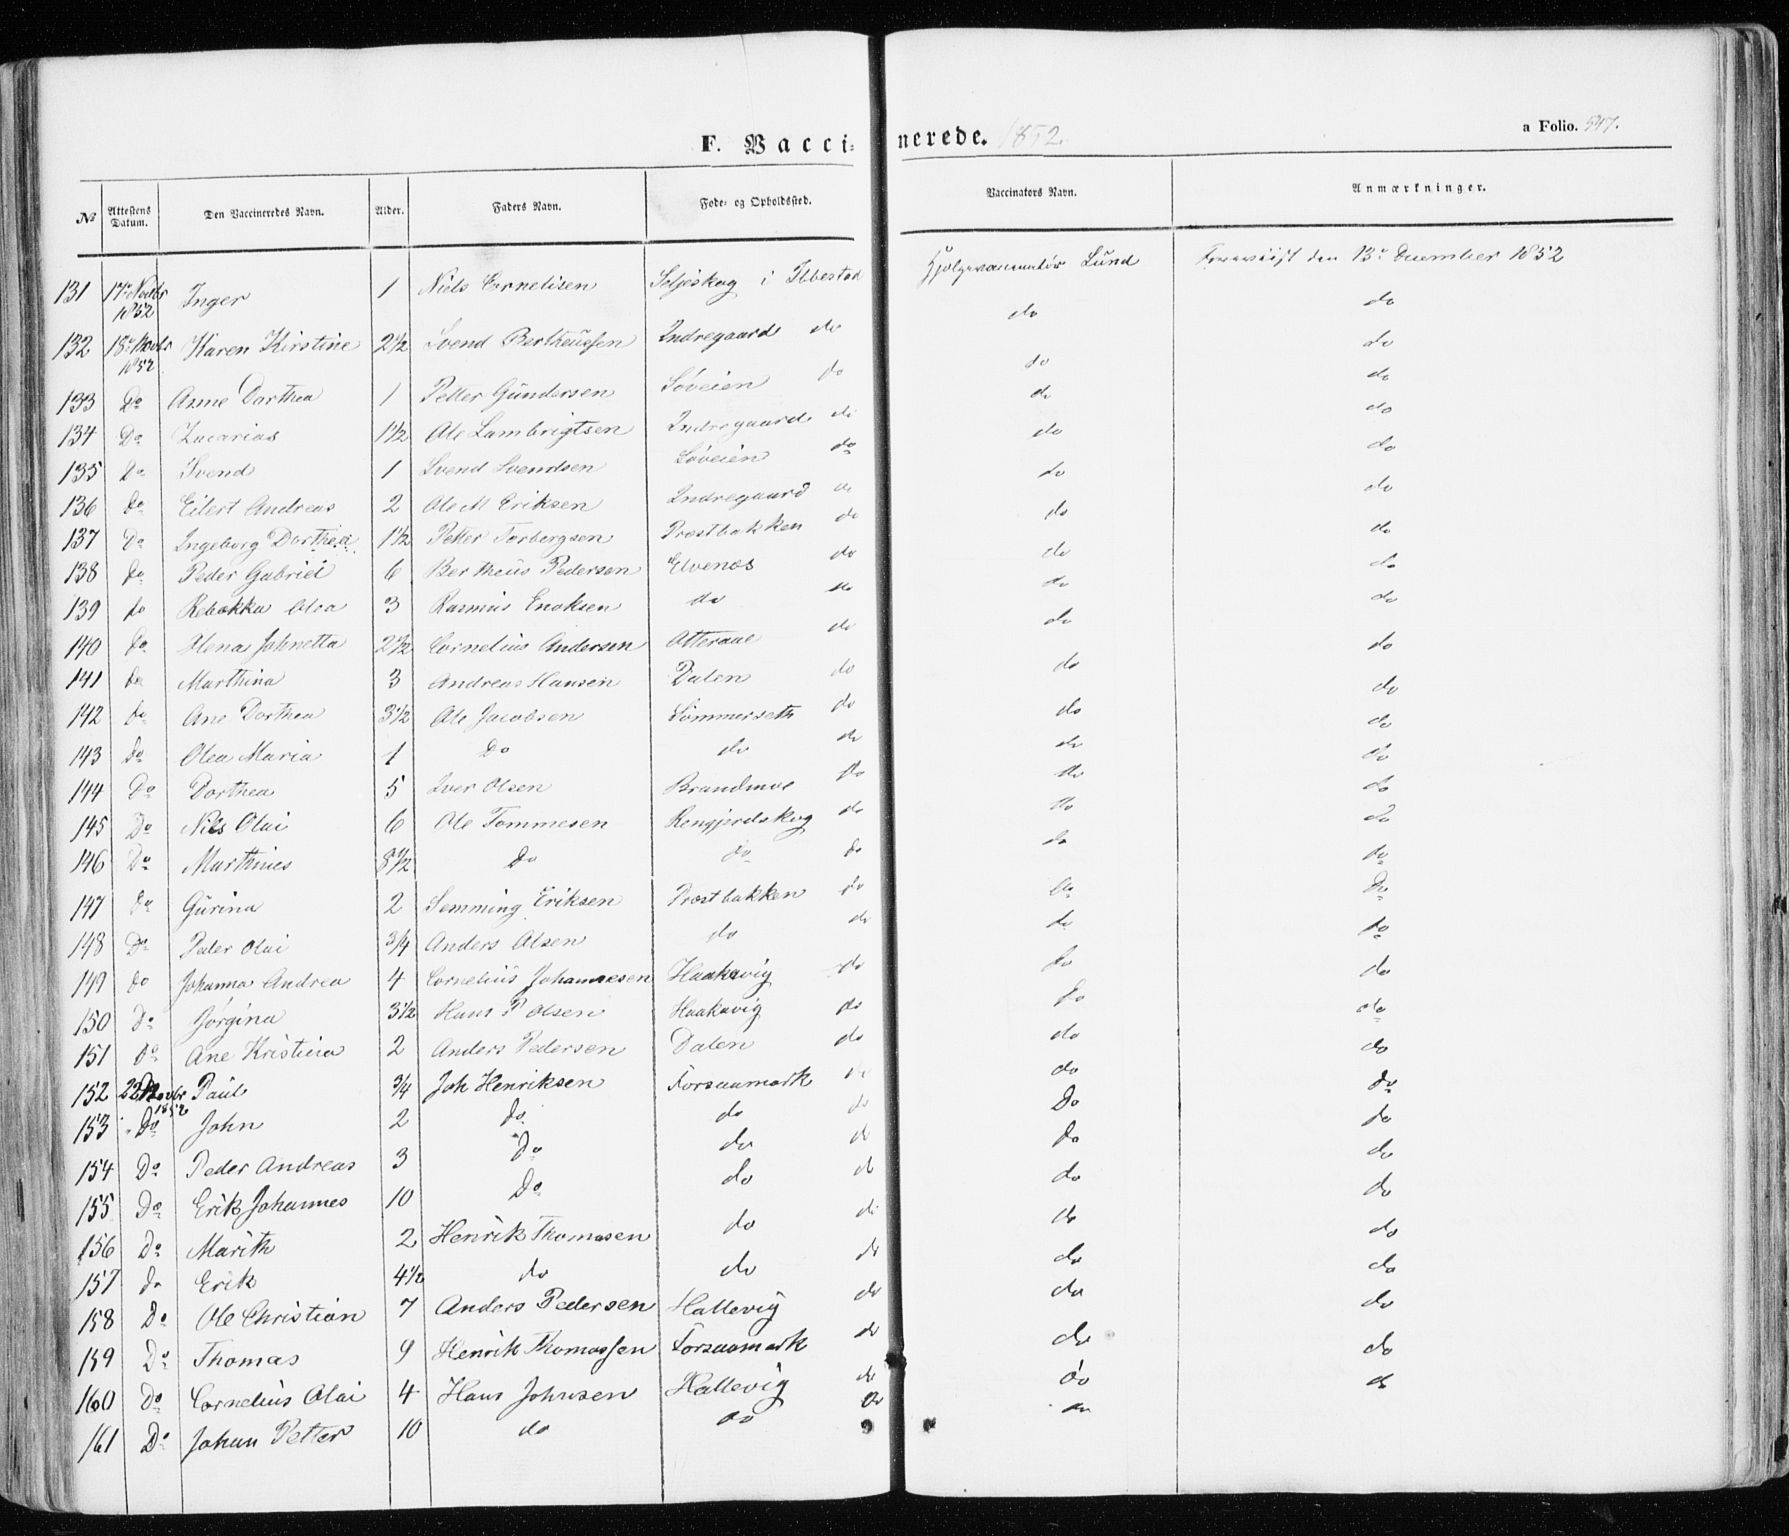 F. Vaccinerede. 1852.
a Folio. 547.
No Attestens Datum. Den Vaccineredes Navn. Alder. Faders Navn. Føde- og Opholdssted. Vaccinators Navn. Anmærkninger.
131 17de Novbr 1852 Inger 1 Niels Cornelisen Seljeskog i Ibbestad Hjelpevaccinatør Lund Foreviist den 13de December 1852
132 18de Novbr 1852 Karen Kirstine 2 1/2 Svend Bertheussen Indregaard do do do
133 Do Anne Dorthea 1 Petter Gundersen Søveien do do do
134 Do Zacarias 1 1/2 Ole Lambrigtsen Indregaard do do do
135 Do Svend 1 Svend Svendsen Søveien do do do
136 do Eilert Andreas 2 Ole M Eriksen Indregaard do do do
137 Do Ingeborg Dorthea 1 1/2 Petter Torbergsen Prostbakken do do do
138 do Peder Gabriel 6 Bertheus Pedersen Elvenes do do do
139 do Rebekka Olea 3 Rasmus Enoksen do do do do
140 do Olena Johnetta 2 1/2 Cornelius Andersen Atteraae do do do
141 do Marthina 3 Andreas Hansen Dalen do do do
142 do Ane Dorthea 3 1/2 Ole Jacobsen Sommerseth do do do
143 do Olea Maria 1 Do do do do do
144 Do Dorthea 5 Iver Olsen Brandmoe do do do
145 Do Nils Olai 6 Ole Tommesen Rengjerdskog do do do
146 Do Marthines 8 1/2 Do do do do do
147 do Gurina 2 Semming Eriksen Prostbakken do do Do
148 Do Peder Olai 3/4 Anders Olsen do do do do
149 do Johanna Andrea 4 Cornelius Johannesen Haakavig do do do
150 Do Jørgina 3 1/2 Hans P Olsen Haakavig do do do
151 Do Ane Kristina 2 Anders Pedersen Dalen do do do
152 22 Novbr 1852 Paul 3/4 Joh Henriksen Forsaamark do do do
153 Do John 2 do do do Do do
154 Do Peder Andreas 3 Do do do do do
155 Do Erik Johannes 10 Do do do do do
156 Do Marith 2 Henrik Thomasen do do do do
157 do Erik 4 1/2 do do do do do
158 Do Ole Christian 7 Anders Pedersen Hallevig do do do
159 Do Thomas 9 Henrik Thomassen Forsaamark do do do
160 do Cornelius Olai 4 Hans Johnsen Hallevig do do do
161 Do Johan Petter 10 do do do do